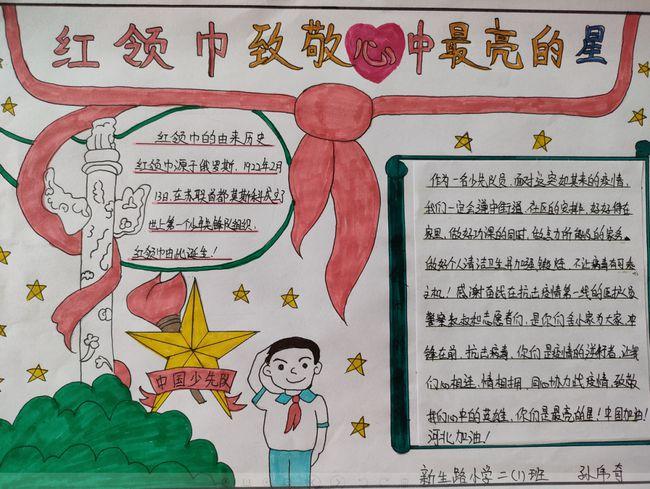 红领巾致敬心中最亮的星
红领巾的由来历史
红领巾源于俄罗斯，1922年2月
13日，在苏联首都莫斯科成立了
世上第一个少年先锋队组织，
红领巾由此诞生！
中国少先队
作为一名少先队员，面对这突如其来的疫情，
我们一定会遵守街道、社区的安排，好好待在
家里，做好功课的同时，做点力所能及的家务。
做好个人清洁卫生并加强锻炼，不让病毒有可乘
之机！感谢奋战在抗击疫情第一线的医护人员
警察叔叔和志愿者们，是你们舍小家为大家，冲
锋在前，抗击病毒，你们是疫情的逆行者，让我
们心相连，情相拥，同心协力战疫情，致敬
我们心中的英雄，你们是最亮的星！中国加油！
河北加油！
新生路小学二(1)班